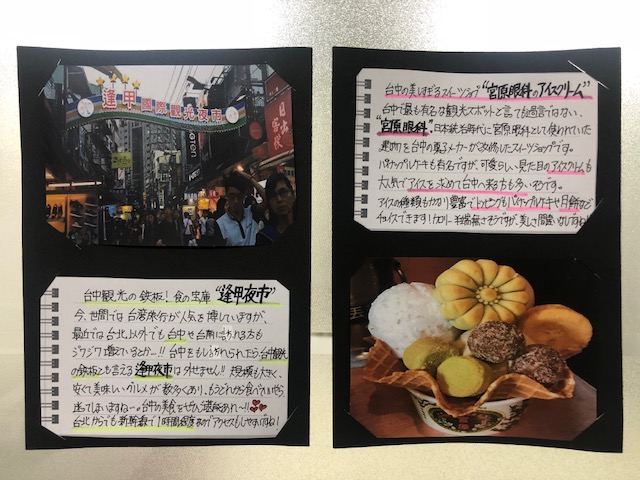 逢甲國際觀光夜市
台中観光の鉄板！食の宝庫"逢甲夜市"
今、世間では台湾旅行が人気を博していますが、
最近では台北以外でも台中や台南に訪れる方も
ジワジワ増えているとか…!! 台中をもし訪れられたら台中観光
の鉄板とも言える逢甲夜市は外せません!! 規模も大きく、
安くて美味しいグルメが数多くあり、もうどれから食べていいやら
迷ってしまいますねー。台中の美食をぜひご堪能あれ〜!!
台北からでも新幹線で1時間程度なのでアクセスもしやすいですね！
台中の美しすぎるスイーツショップ"宮原眼科のアイスクリーム"
台中で最も有名な観光スポットと言っても過言ではない、
"宮原眼科"。日本統治時代に宮原眼科として使われていた
建物を台中の菓子メーカーが改修したスイーツショップです。
パイナップルケーキも有名ですが、可愛らしい見た目のアイスクリームも
大人気でアイスを求めて台中へ来る方も多いそうです。
アイスの種類もかなり豊富でトッピングもパイナップルケーキや月餅など
チョイスできます！カロリー半端無さそうですが、美しさ間違いなしですね!!